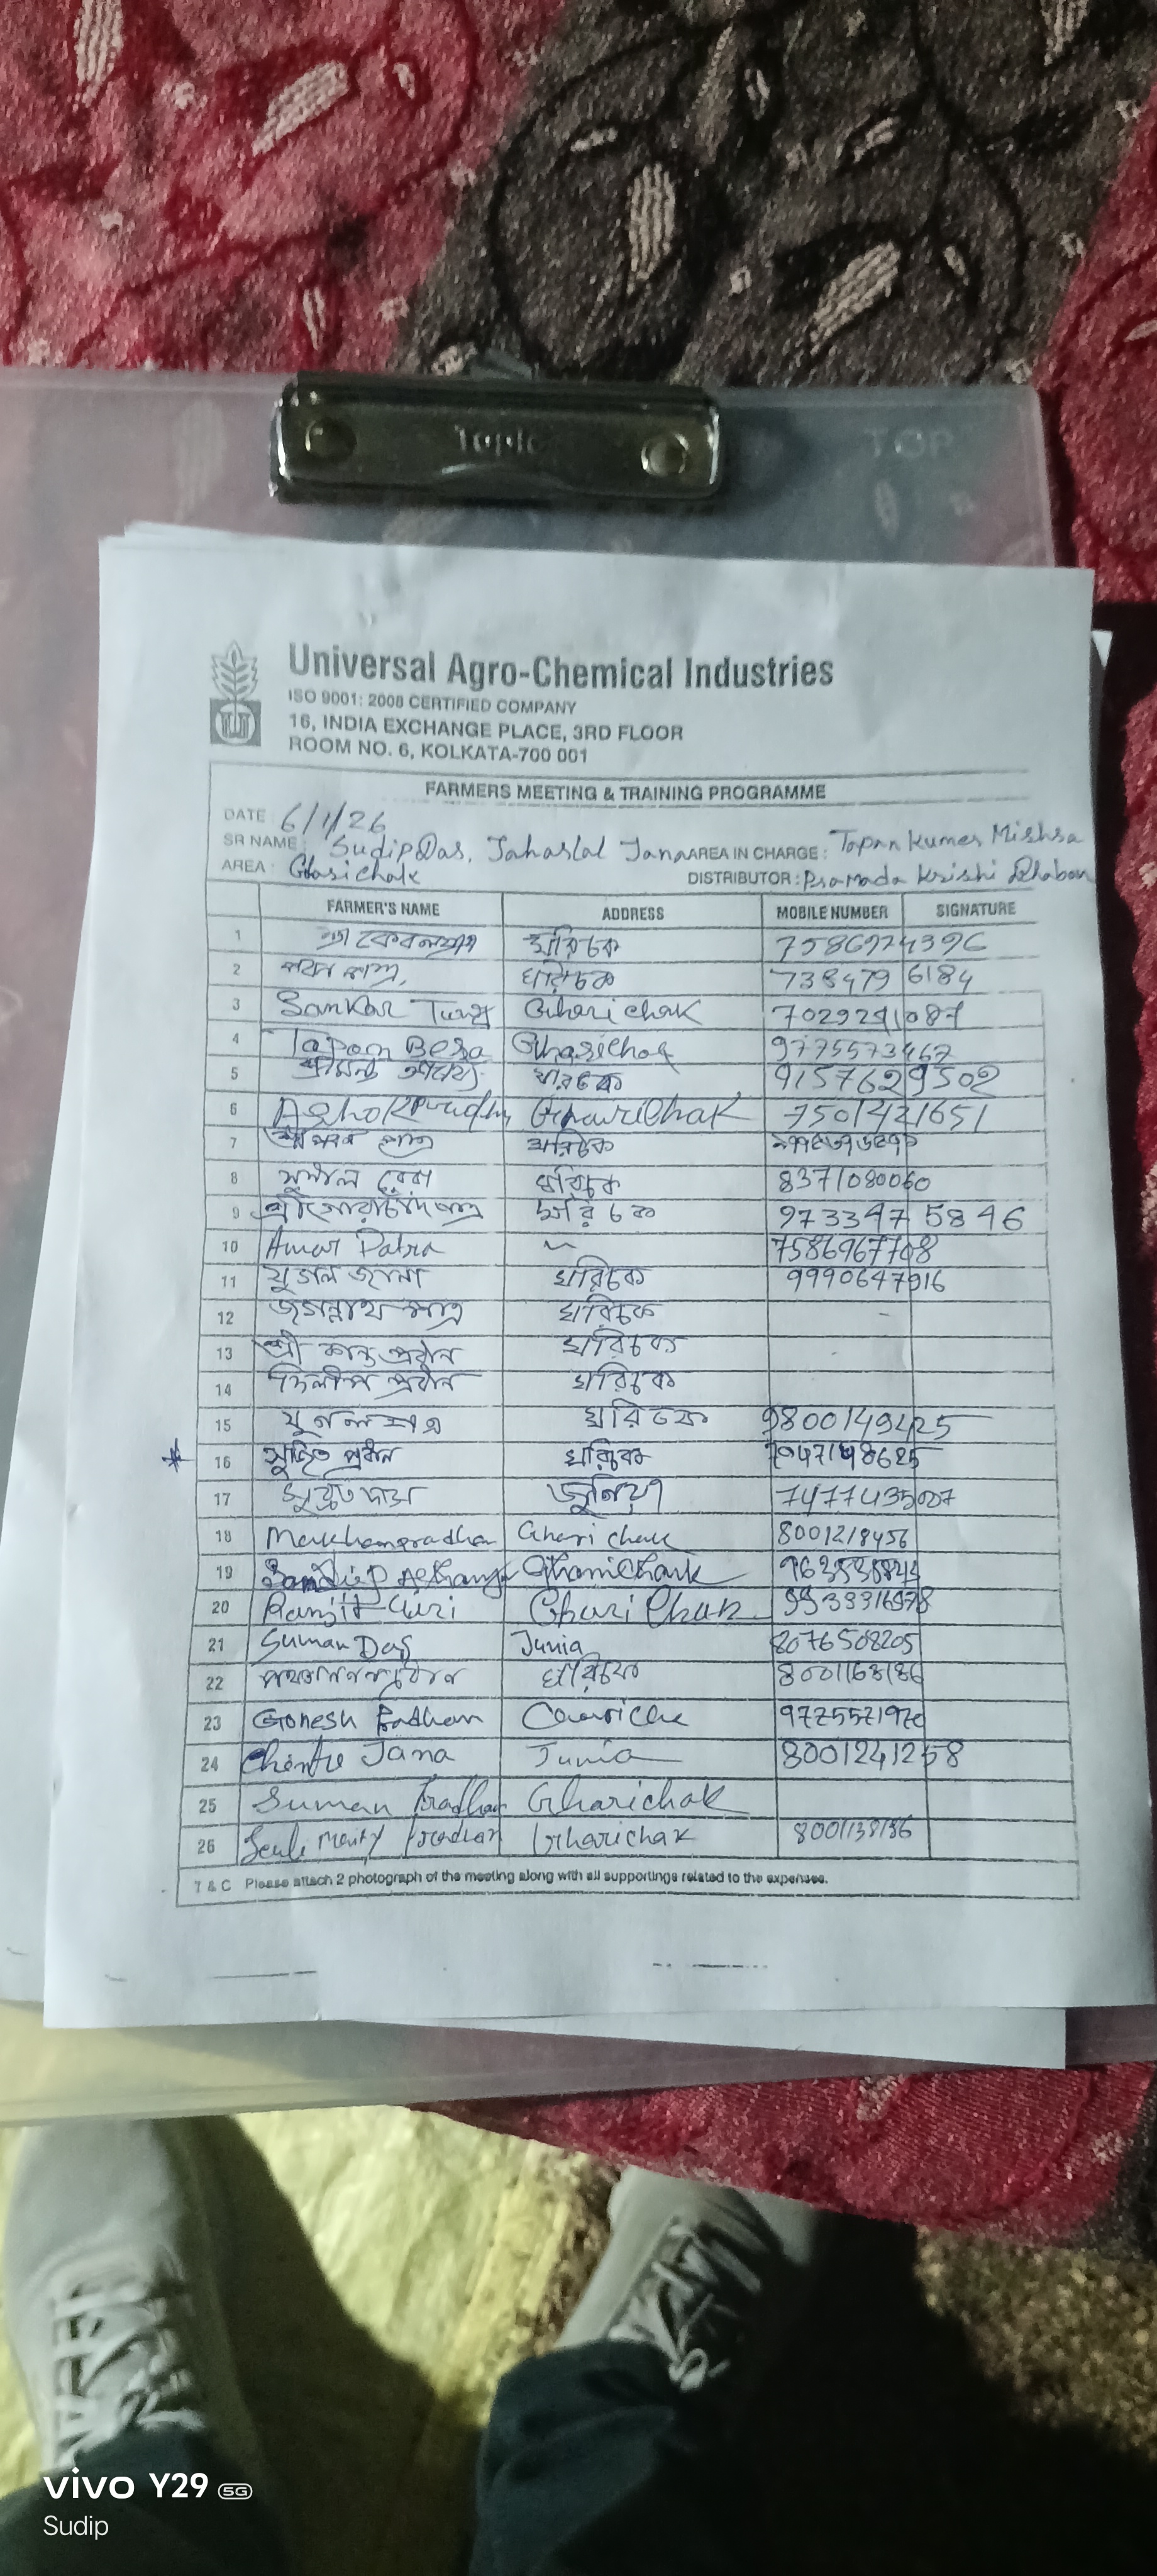 Topic
TOP
Universal Agro-Chemical Industries
ISO 9001: 2008 CERTIFIED COMPANY
16, INDIA EXCHANGE PLACE, 3RD FLOOR
ROOM NO. 6, KOLKATA-700 001
FARMERS MEETING & TRAINING PROGRAMME
DATE 6/1/26
SR NAME : Sudip Das, Jaharlal Jana AREA IN CHARGE : Tapan Kumar Mishra
AREA : Gharichak DISTRIBUTOR : Pramada Krishi Bhaban
FARMER'S NAME ADDRESS MOBILE NUMBER SIGNATURE
1 ঘরিচক 7586924396
2 পবন পাত্র, ঘরিচক 7384796184
3 Sankar Gharichak 7029241087
4 Tapan Bera Gharichak 9775573467
5 ঘরিচক 9157629502
6 Ashok Pradhn GhariChak 7501421651
7 ঘরিচক
8 সুশীল বেরা ঘরিচক 8371080060
9 শ্রী গোরাচাঁদ পাত্র ঘরিচক 973347 5846
10 Amar Patra 〃 7586967708
11 যুগল জানা ঘরিচক 9990647916
12 জগন্নাথ পাত্র ঘরিচক -
13 শ্রী শান্ত প্রধান ঘরিচক
14 দিলীপ প্রধান ঘরিচক
15 যুগল পাত্র ঘরিচক 9800149425
* 16 সুজিত প্রধান ঘরিচক
17 সুব্রত দাস জুনিয়া 7477435007
18 Makhan pradhan Ghari chak 8001218456
19
20 Ranjit Giri Ghari Chak
21 Suman Das Junia 8076508205
22 ঘরিচক 8001168186
23 Gonesh Pradhan
24 Jana Junia 8001241258
25 Suman Pradhan Gharichak
26 Pradhan Gharichak
T & C Please attach 2 photograph of the meeting along with all supportings related to the expenses.
vivo Y29 5G
Sudip